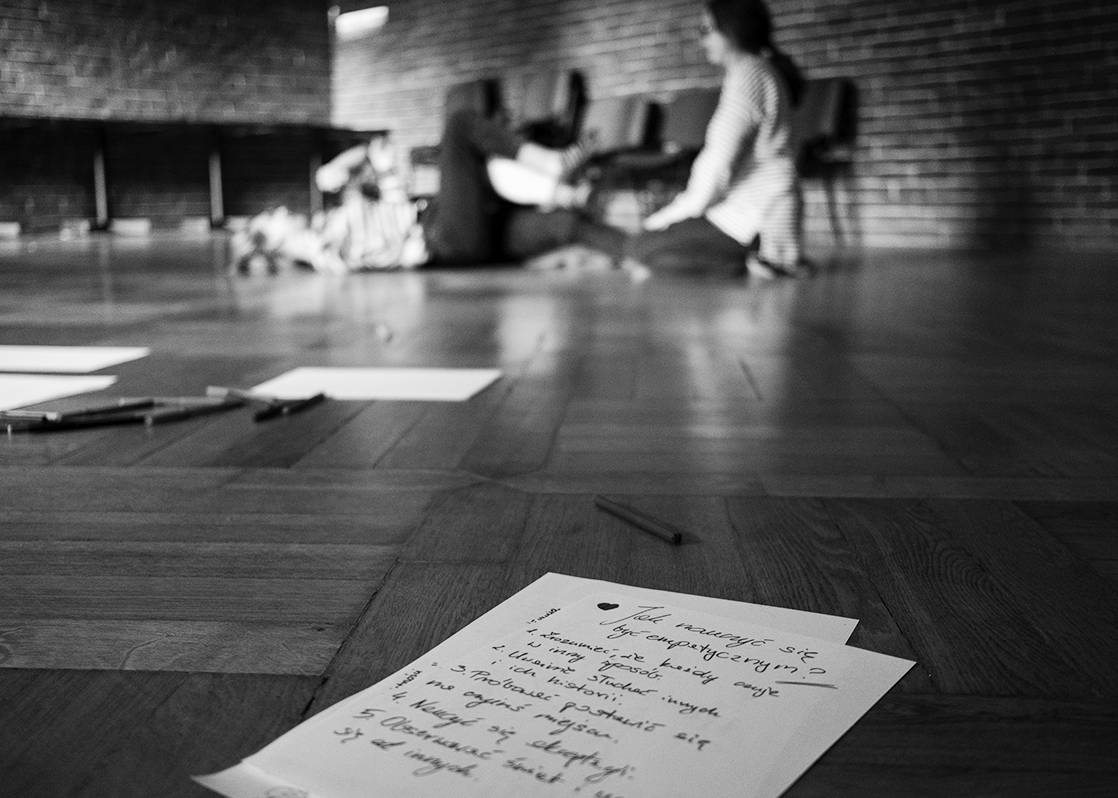 Jak nauczyć się
być empatycznym?
1. Zrozumieć, że każdy czuje
w inny sposób.
2. Uważnie słuchać innych
i ich historii.
3. Próbować postawić się
na czyimś miejscu.
4. Nauczyć się akceptacji.
5. Obserwować świat i
się od innych.